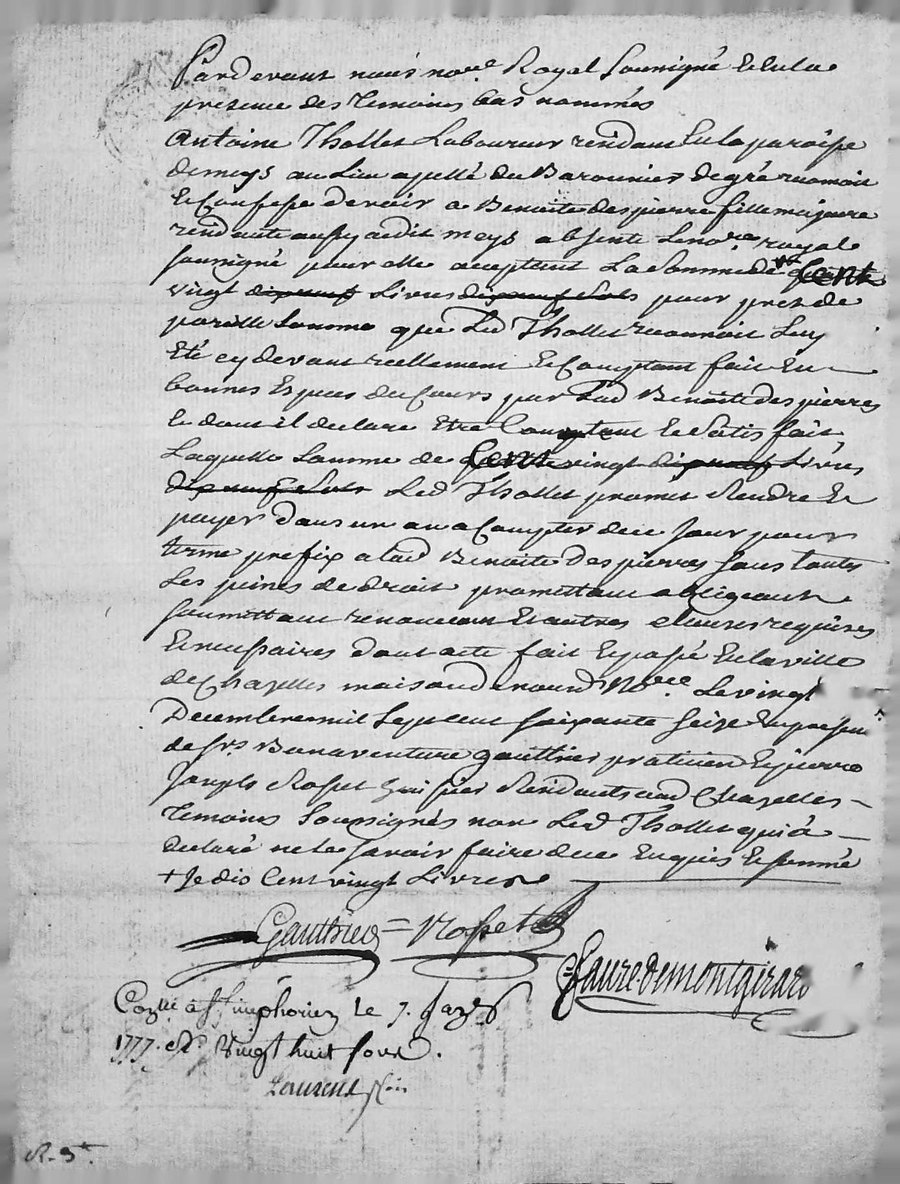 Pardevant nous no.re Royal Soussigné et en la
presence des Temoins bas nommés
Antoine Thollet Laboureur residant en la paroisse
de meys au lieu apellé du Barounier de gré reconnoit
et Confesse devoir a Benoite despierre fille majeure
residante aussy audit meys absente le no.re royal
soussigné pour elle aceptant La somme de Cent
vingt dixneuf Livres dixneuf sols pour pret de
pareille somme que led Thollet reconnoit luy
Eté cy devant reellement et Comptant fait en
bonnes Espces du Cours par lad Benoite despierres
et dont il declare Etre Comptant et satisfait,
Laquelle somme de Cent vingt dixneuf Livres
dixneuf sols Led Thollet promet Rendre et
payer dans un an a Compter de ce jour pour
terme prefix a lad Benoite despierres sous toutes
les peines de droit promettant obligeant
soumettant renoncant et autres clauses requises
et necessaires dont acte fait et passé en la ville
de Chazelles maison de nourd No.re Le vingt
Decembre mil sept cent soixante seize En presence
de srs Bonaventure gauthier praticien et pierre
Joseph Rosset huissier Residants aud Chazelles
Temoins soussignés non Led Thollet qui a
declaré ne le savoir faire de ce Enquis et sommé
+ Je dis Cent vingt Livres
Gauthier Rosset
Faure de montgirard
Con.lé à st Simphorien le 7. Janv.
1777. R. Vingt huit sous.
Laurent
R. 3